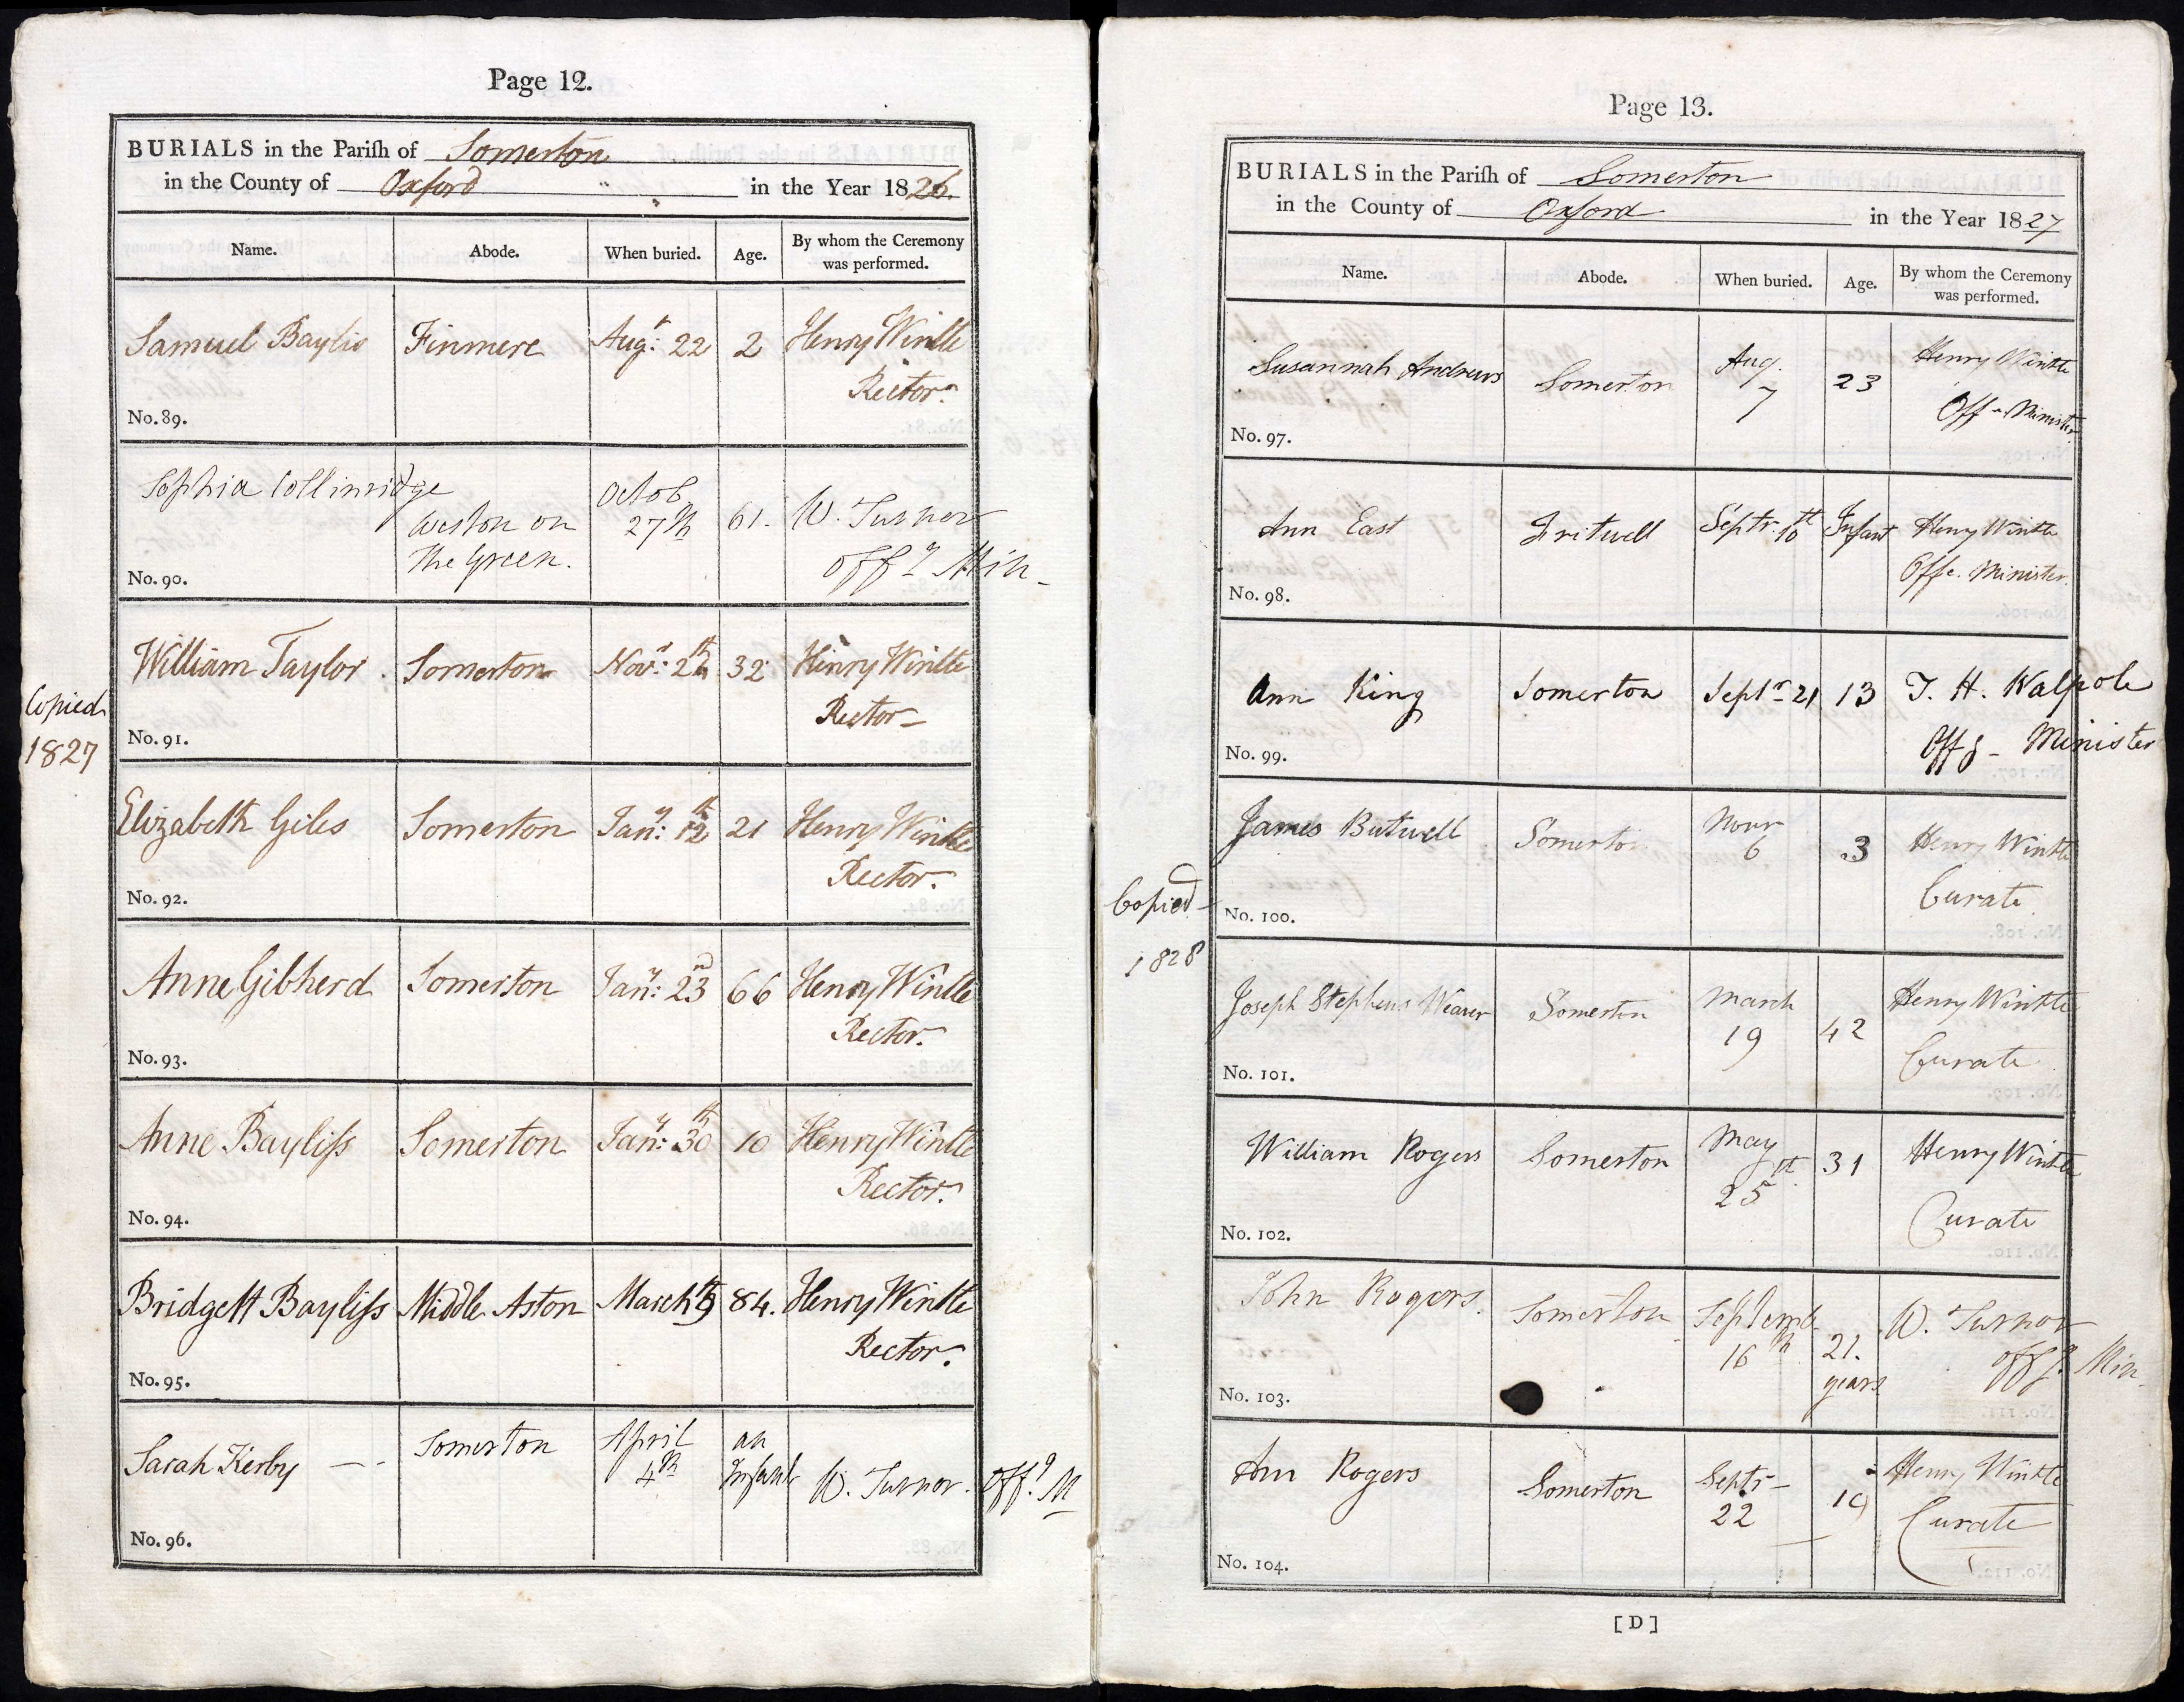 Page 12.
BURIALS in the Pariſh of Somerton
in the County of Oxford in the Year 1826.
Name. Abode. When buried. Age. By whom the Ceremony
was performed.
Samuel Baylis Finmere Augt: 22 2 Henry Wintle
Rector.
No. 89.
Sophia Collinridge
Octob
Weston on 27th 61. W. Turner
The Green. offg Min
No. 90.
William Taylor. Somerton Novr: 26th 32 Henry Wintle
Rector
No. 91.
Copied
1827
Elizabeth Giles Somerton Jany: 12th 21 Henry Wintle
Rector.
No. 92.
Anne Gibherd Somerton Jany: 23nd 66 Henry Wintle
Rector.
No. 93.
Anne Bayliſs Somerton Jany: 30th 10 Henry Wintle
Rector.
No. 94.
Bridgett Bayliſs Middle Aston March 84. Henry Wintle
Rector.
No. 95.
Somerton April an
Sarah Kerby 4th Infant W. Turnor. offg M
No. 96.
Page 13.
BURIALS in the Pariſh of Somerton
in the County of Oxford in the Year 1827
Name. Abode. When buried. Age. By whom the Ceremony
was performed.
Susannah Andrews Somerton Aug. 23 Henry Wintle
7 Off - Minister
No. 97.
Ann East Fritwell Septr. 10th Infant Henry Wintle
Offc. Minister.
No. 98.
Ann King Somerton Septr 21 13 T. H. Walpole
Offg - Minister
No. 99.
James Butwell Somerton Novr 3 Henry Wintle
6 Curate
No. 100.
Copied
1828
Joseph Stephens Weaver Somerton March 42 Henry Wintle
19 Curate
No. 101.
William Rogers Somerton May 31 Henry Wintle
25th Curate
No. 102.
John Rogers. Somerton Septemb W. Turnor
16th 21. offg. Min
years
No. 103.
Ann Rogers Somerton Septr 19 Henry Wintle
22 Curate
No. 104.
[D]